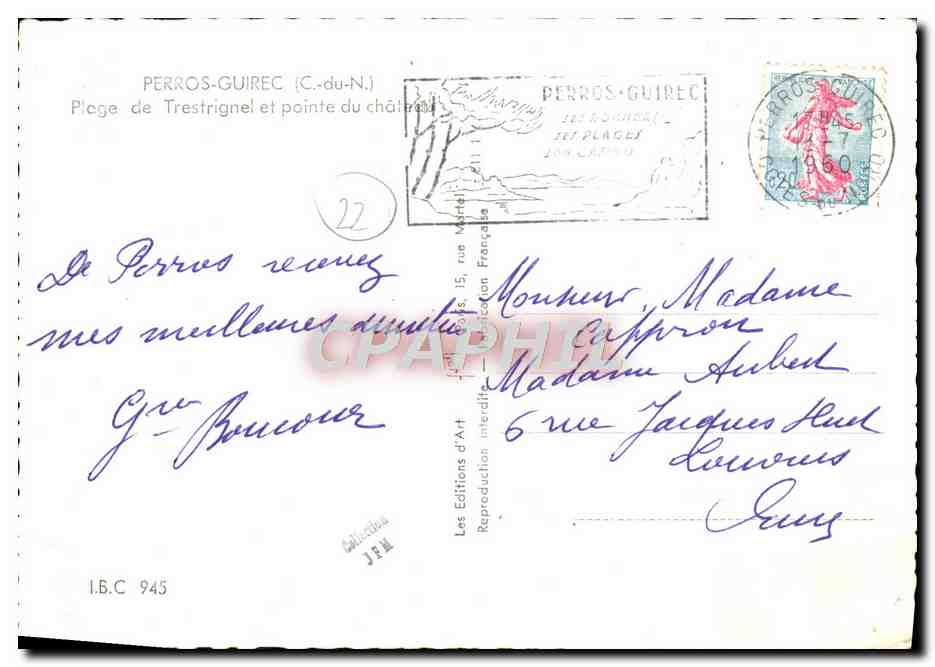 PERROS-GUIREC (C.-du-N.)
Plage de Trestrignel et pointe du château
PERROS-GUIREC
SES ROCHERS
SES PLAGES
SON CASINO
PERROS-GUIREC
1960
22
De Perros recevez
mes meilleures amitiés
Gve Boucour
Monsieur, Madame
Cappron
Madame Aubert
6 rue Jacques Huet
Louviers
Eure
CPAPHIL
Les Editions d'Art
Paris, 15, rue Martel
Reproduction interdite — Fabrication Française
Collection
JFM
I.B.C 945